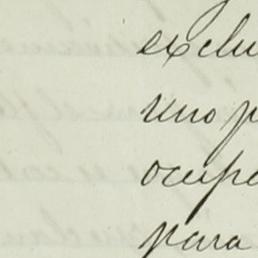 exclu
uno p
ocupa
para